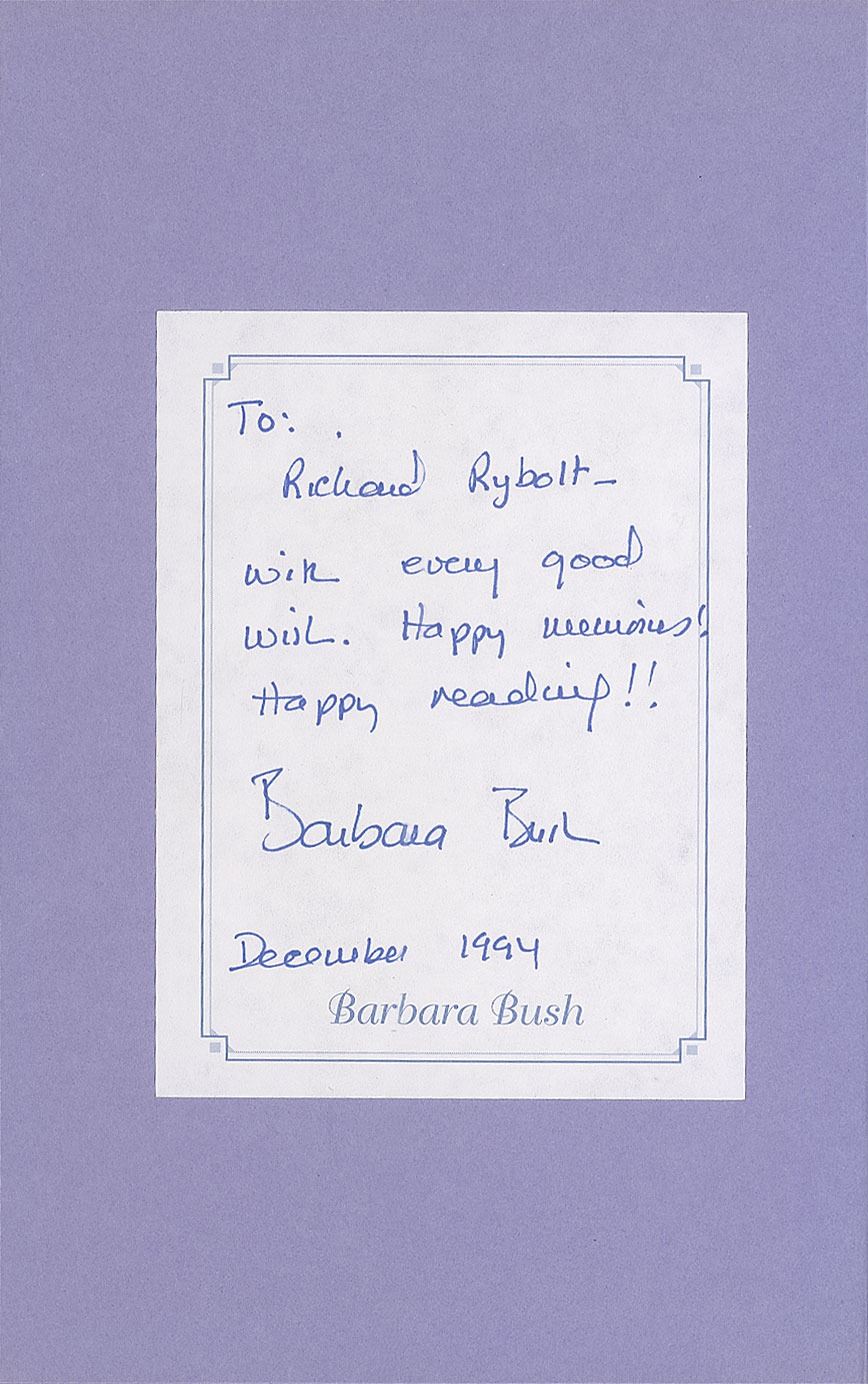 To:
Richard Rybolt-
with every good
wish. Happy memories!
Happy reading!!
Barbara Bush
December 1994
Barbara Bush